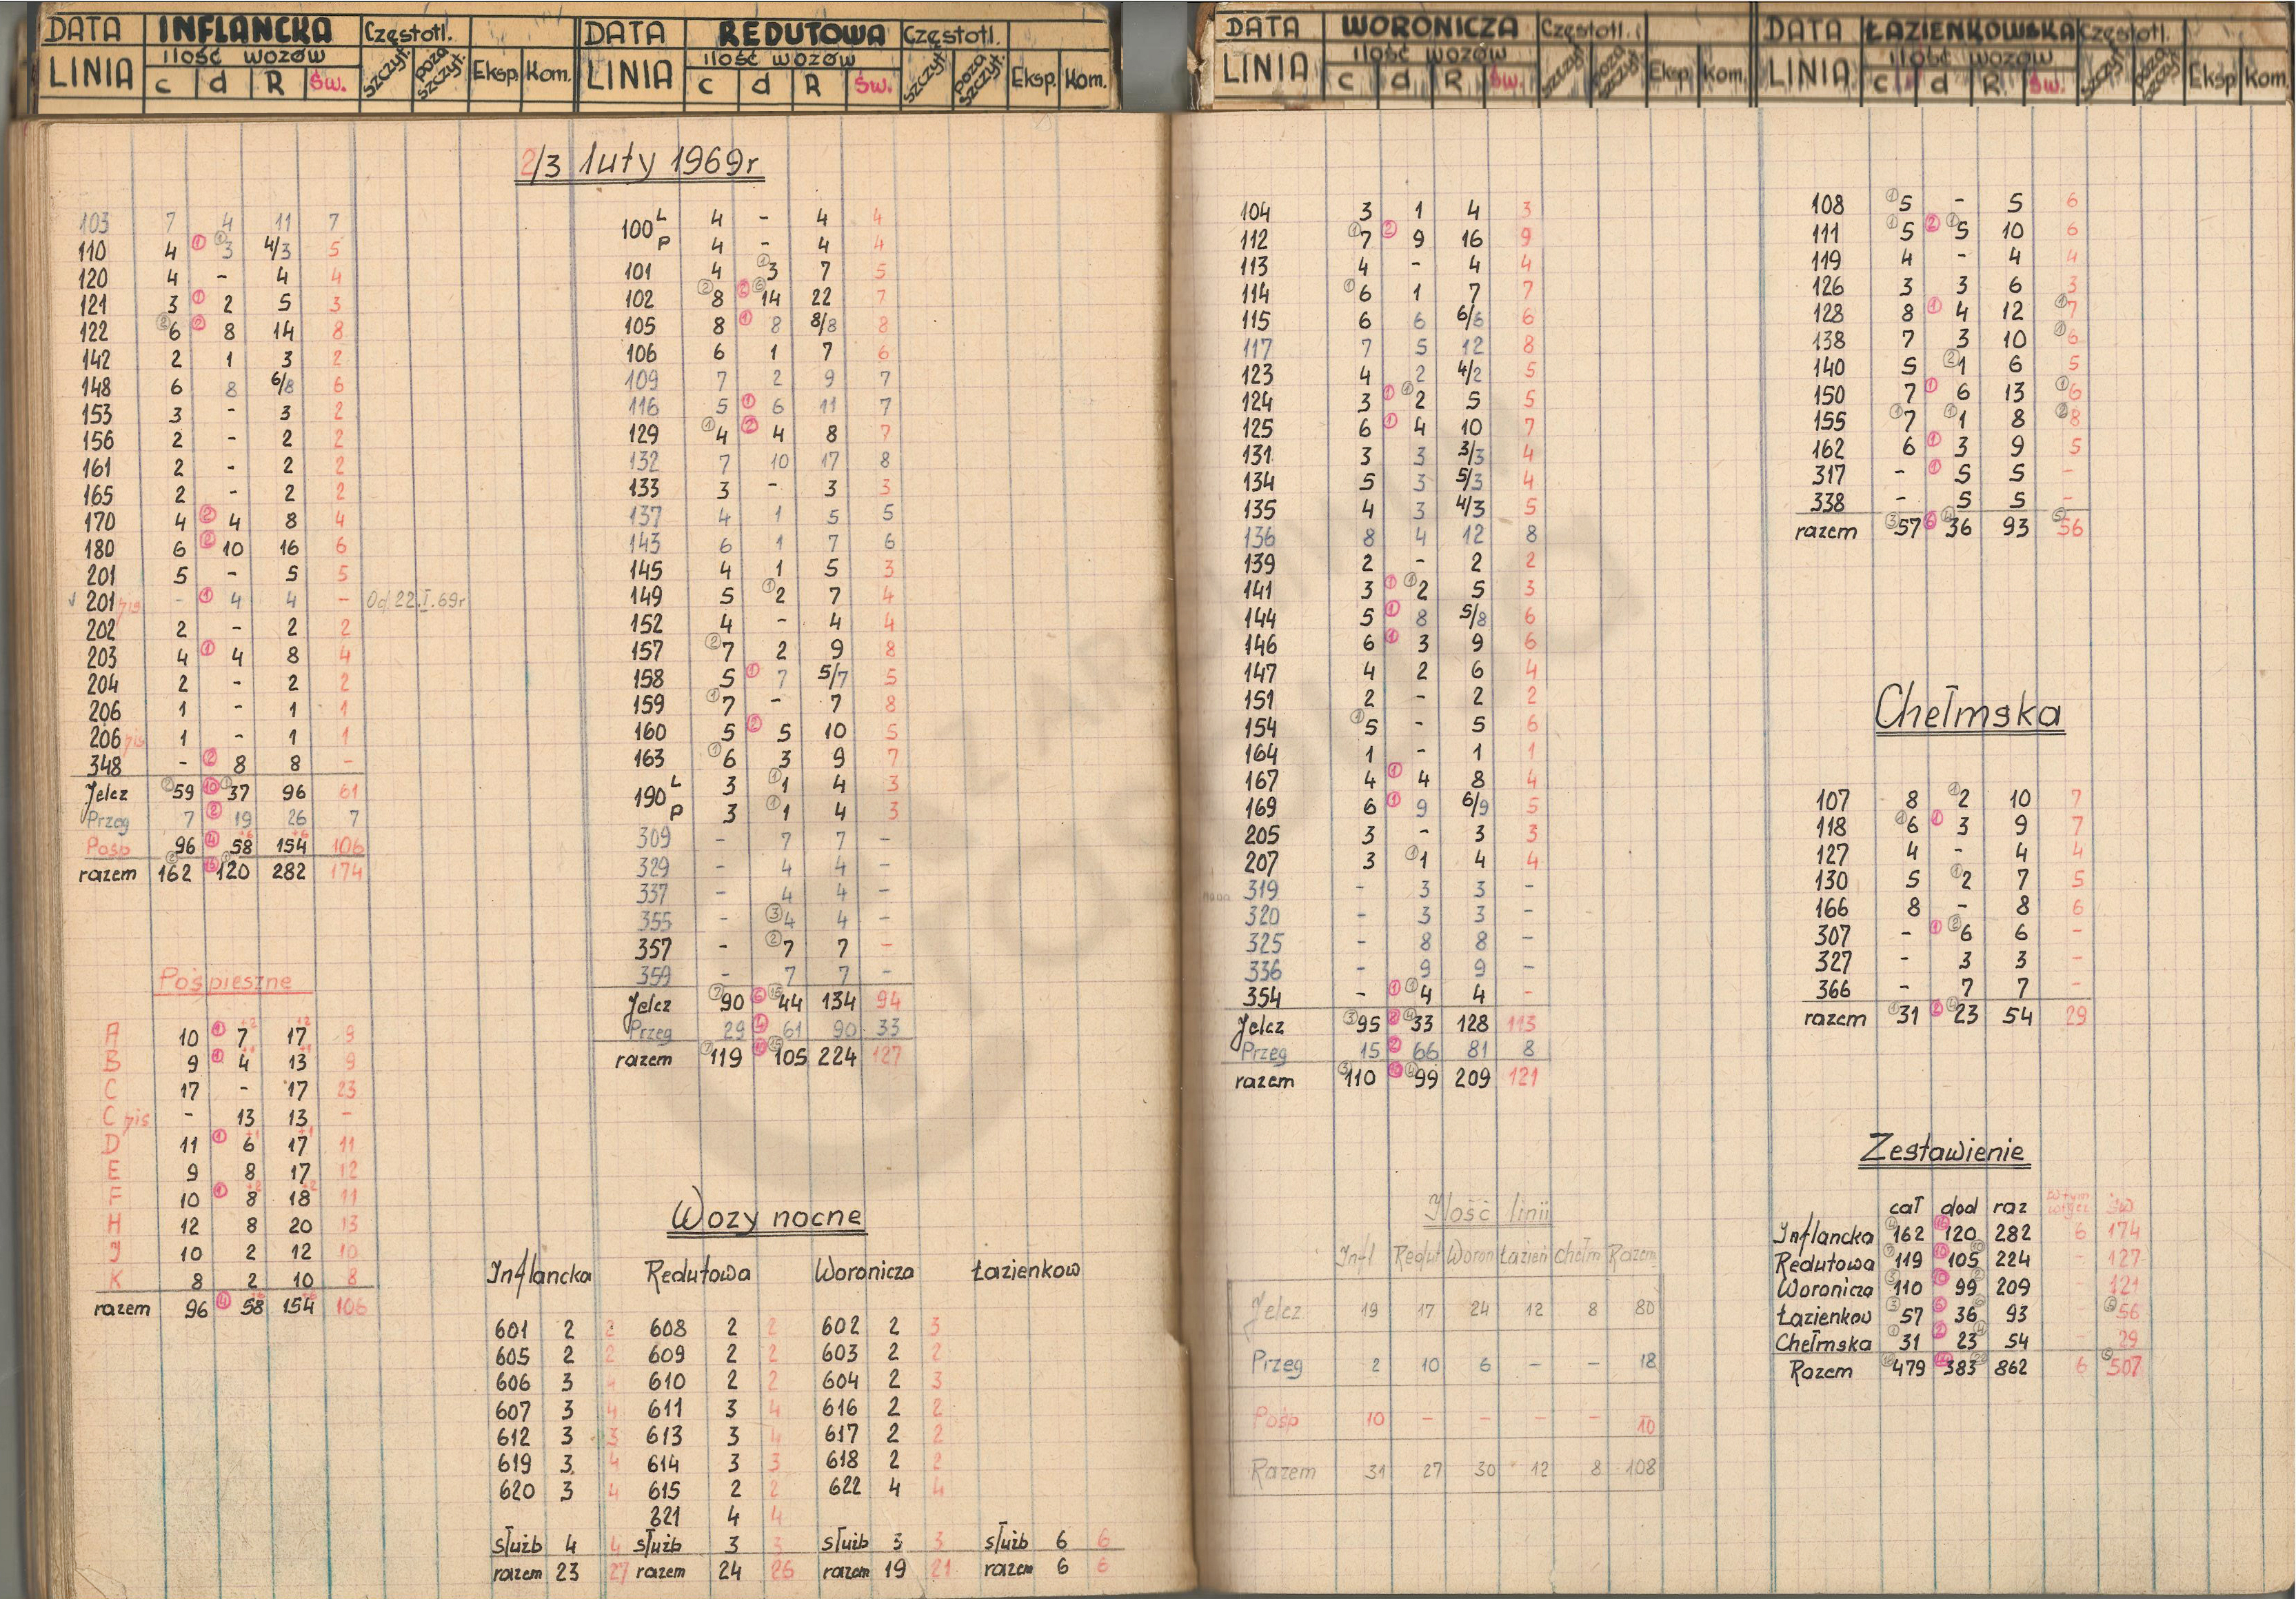 DATA INFLANCKA Częstotl.
ilość wozów
LINIA c d R Św. szczyt. poza szczyt. Eksp. Kom.
DATA REDUTOWA Częstotl.
ilość wozów
LINIA c d R Św. szczyt. poza szczyt. Eksp. Kom.
DATA WORONICZA Częstotl.
ilość wozów
LINIA c d R Św. szczyt. poza szczyt. Eksp. Kom.
DATA ŁAZIENKOWSKA Częstotl.
ilość wozów
LINIA c d R Św. szczyt. poza szczyt. Eksp. Kom.
2/3 luty 1969r
103 7 4 11 7
110 4 ① ① 3 4/3 5
120 4 - 4 4
121 3 ① 2 5 3
122 ② 6 ② 8 14 8
142 2 1 3 2
148 6 8 6/8 6
153 3 - 3 2
156 2 - 2 2
161 2 - 2 2
165 2 - 2 2
170 4 ② 4 8 4
180 6 ② 10 16 6
201 5 - 5 5
201 bis - ① 4 4 - Od 22.I.69r
202 2 - 2 2
203 4 ① 4 8 4
204 2 - 2 2
206 1 - 1 1
206 bis 1 - 1 1
348 - ② 8 8 -
Jelcz ② 59 ⑩ ① 37 96 61
Przeg 7 ② 19 26 7
Pośp 96 ④ 58 +6 154 +6 106
razem ② 162 ⑯ ① 120 282 174
Pośpieszne
A 10 ① 7 +2 17 +2 9
B 9 ① 4 +1 13 +1 9
C 17 - 17 23
C bis - 13 13 -
D 11 ① 6 +1 17 +1 11
E 9 8 17 12
F 10 ① 8 +2 18 +2 11
H 12 8 20 13
J 10 2 12 10
K 8 2 10 8
razem 96 ④ 58 +6 154 +6 106
100 L 4 - 4 4
P 4 - 4 4
101 4 ① 3 7 5
102 ② 8 ② ⑥ 14 22 7
105 8 ① 8 8/8 8
106 6 1 7 6
109 7 2 9 7
116 5 ① 6 11 7
129 ① 4 ② 4 8 7
132 7 10 17 8
133 3 - 3 3
137 4 1 5 5
143 6 1 7 6
145 4 1 5 3
149 5 ① 2 7 4
152 4 - 4 4
157 ② 7 2 9 8
158 5 ① 7 5/7 5
159 ① 7 - 7 8
160 5 ② 5 10 5
163 ① 6 3 9 7
190 L 3 ① 1 4 3
P 3 ① 1 4 3
309 - 7 7 -
329 - 4 4 -
337 - 4 4 -
355 - ③ 4 4 -
357 - ② 7 7 -
359 - 7 7 -
Jelcz ⑦ 90 ⑥ ⑮ 44 134 94
Przeg 29 ④ 61 90 33
razem ⑦ 119 ⑩ ⑮ 105 224 127
Wozy nocne
Inflancka Redutowa Woronicza Łazienkow
601 2 2 608 2 2 602 2 3
605 2 2 609 2 2 603 2 2
606 3 4 610 2 2 604 2 3
607 3 4 611 3 4 616 2 2
612 3 3 613 3 4 617 2 2
619 3 4 614 3 3 618 2 2
620 3 4 615 2 2 622 4 4
321 4 4
służb 4 4 służb 3 3 służb 3 3 służb 6 6
razem 23 27 razem 24 26 razem 19 21 razem 6 6
104 3 1 4 3
112 ① 7 ② 9 16 9
113 4 - 4 4
114 ① 6 1 7 7
115 6 6 6/6 6
117 7 5 12 8
123 4 2 4/2 5
124 3 ① ① 2 5 5
125 6 ① 4 10 7
131 3 3 3/3 4
134 5 3 5/3 4
135 4 3 4/3 5
136 8 4 12 8
139 2 - 2 2
141 3 ① ① 2 5 3
144 5 ① 8 5/8 6
146 6 ① 3 9 6
147 4 2 6 4
151 2 - 2 2
154 ① 5 - 5 6
164 1 - 1 1
167 4 ① 4 8 4
169 6 ① 9 6/9 5
205 3 - 3 3
207 3 ① 1 4 4
319 - 3 3 -
320 - 3 3 -
325 - 8 8 -
336 - 9 9 -
354 - ① ① 4 4 -
Jelcz ③ 95 ⑧ ④ 33 128 113
Przeg 15 ② 66 81 8
razem ③ 110 ⑩ ④ 99 209 121
Ilość linii
Infl Redut Woron Łazien Chełm Razem
Jelcz 19 17 24 12 8 80
Przeg 2 10 6 - - 18
Pośp 10 - - - - 10
Razem 31 27 30 12 8 108
108 ① 5 - 5 6
111 ① 5 ② ① 5 10 6
119 4 - 4 4
126 3 3 6 3
128 8 ① 4 12 ① 7
138 7 3 10 ① 6
140 5 ② 1 6 5
150 7 ① 6 13 ① 6
155 ① 7 ① 1 8 ② 8
162 6 ① 3 9 5
317 - ① 5 5 -
338 - 5 5 -
razem ③ 57 ⑥ ④ 36 93 ⑤ 56
Chełmska
107 8 ① 2 10 7
118 ① 6 ① 3 9 7
127 4 - 4 4
130 5 ① 2 7 5
166 8 - 8 6
307 - ① ② 6 6 -
327 - 3 3 -
366 - 7 7 -
razem ① 31 ② ④ 23 54 29
Zestawienie
cał dod raz w tym św
Inflancka 162 ⑯ 120 282 6 174
Redutowa ⑦ 119 ⑩ 105 224 - 127
Woronicza ③ 110 ⑩ 99 209 121
Łazienkow ③ 57 ⑥ 36 93 ⑤ 56
Chełmska ① 31 ② 23 54 - 29
Razem 479 383 862 6 ⑤ 507